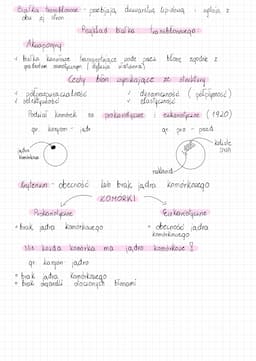 Białka transbłonowe - przebijają dwuwarstwę lipidową i wystają z
obu jej stron
Przykład białka transbłonowego
Akwaporyny
białka kanałowe transportujące wodę przez błonę zgodnie z
gradientem osmotycznym
Cechy błon wynikające ze struktury
✓ półprzepuszczalność ✓ dynamiczność ( półpłynność )
✓ selektywność ✓ elastyczność
Podział komórek na prokariotyczne i eukariotyczne ( 1920)
gr. karyon - jądro gr. pro - przed
jądro
komórkowe
koliste
DNA
nukleoid
Kryterium - obecność lub brak jądra komórkowego
KOMÓRKI
Prokariotyczne Eukariotyczne
brak jądra komórkowego obecność jądra
komórkowego
Nie każda komórka ma jądro komórkowe !
gr. karyon - jądro
brak jądra komórkowego
brak organelli otoczonych błonami